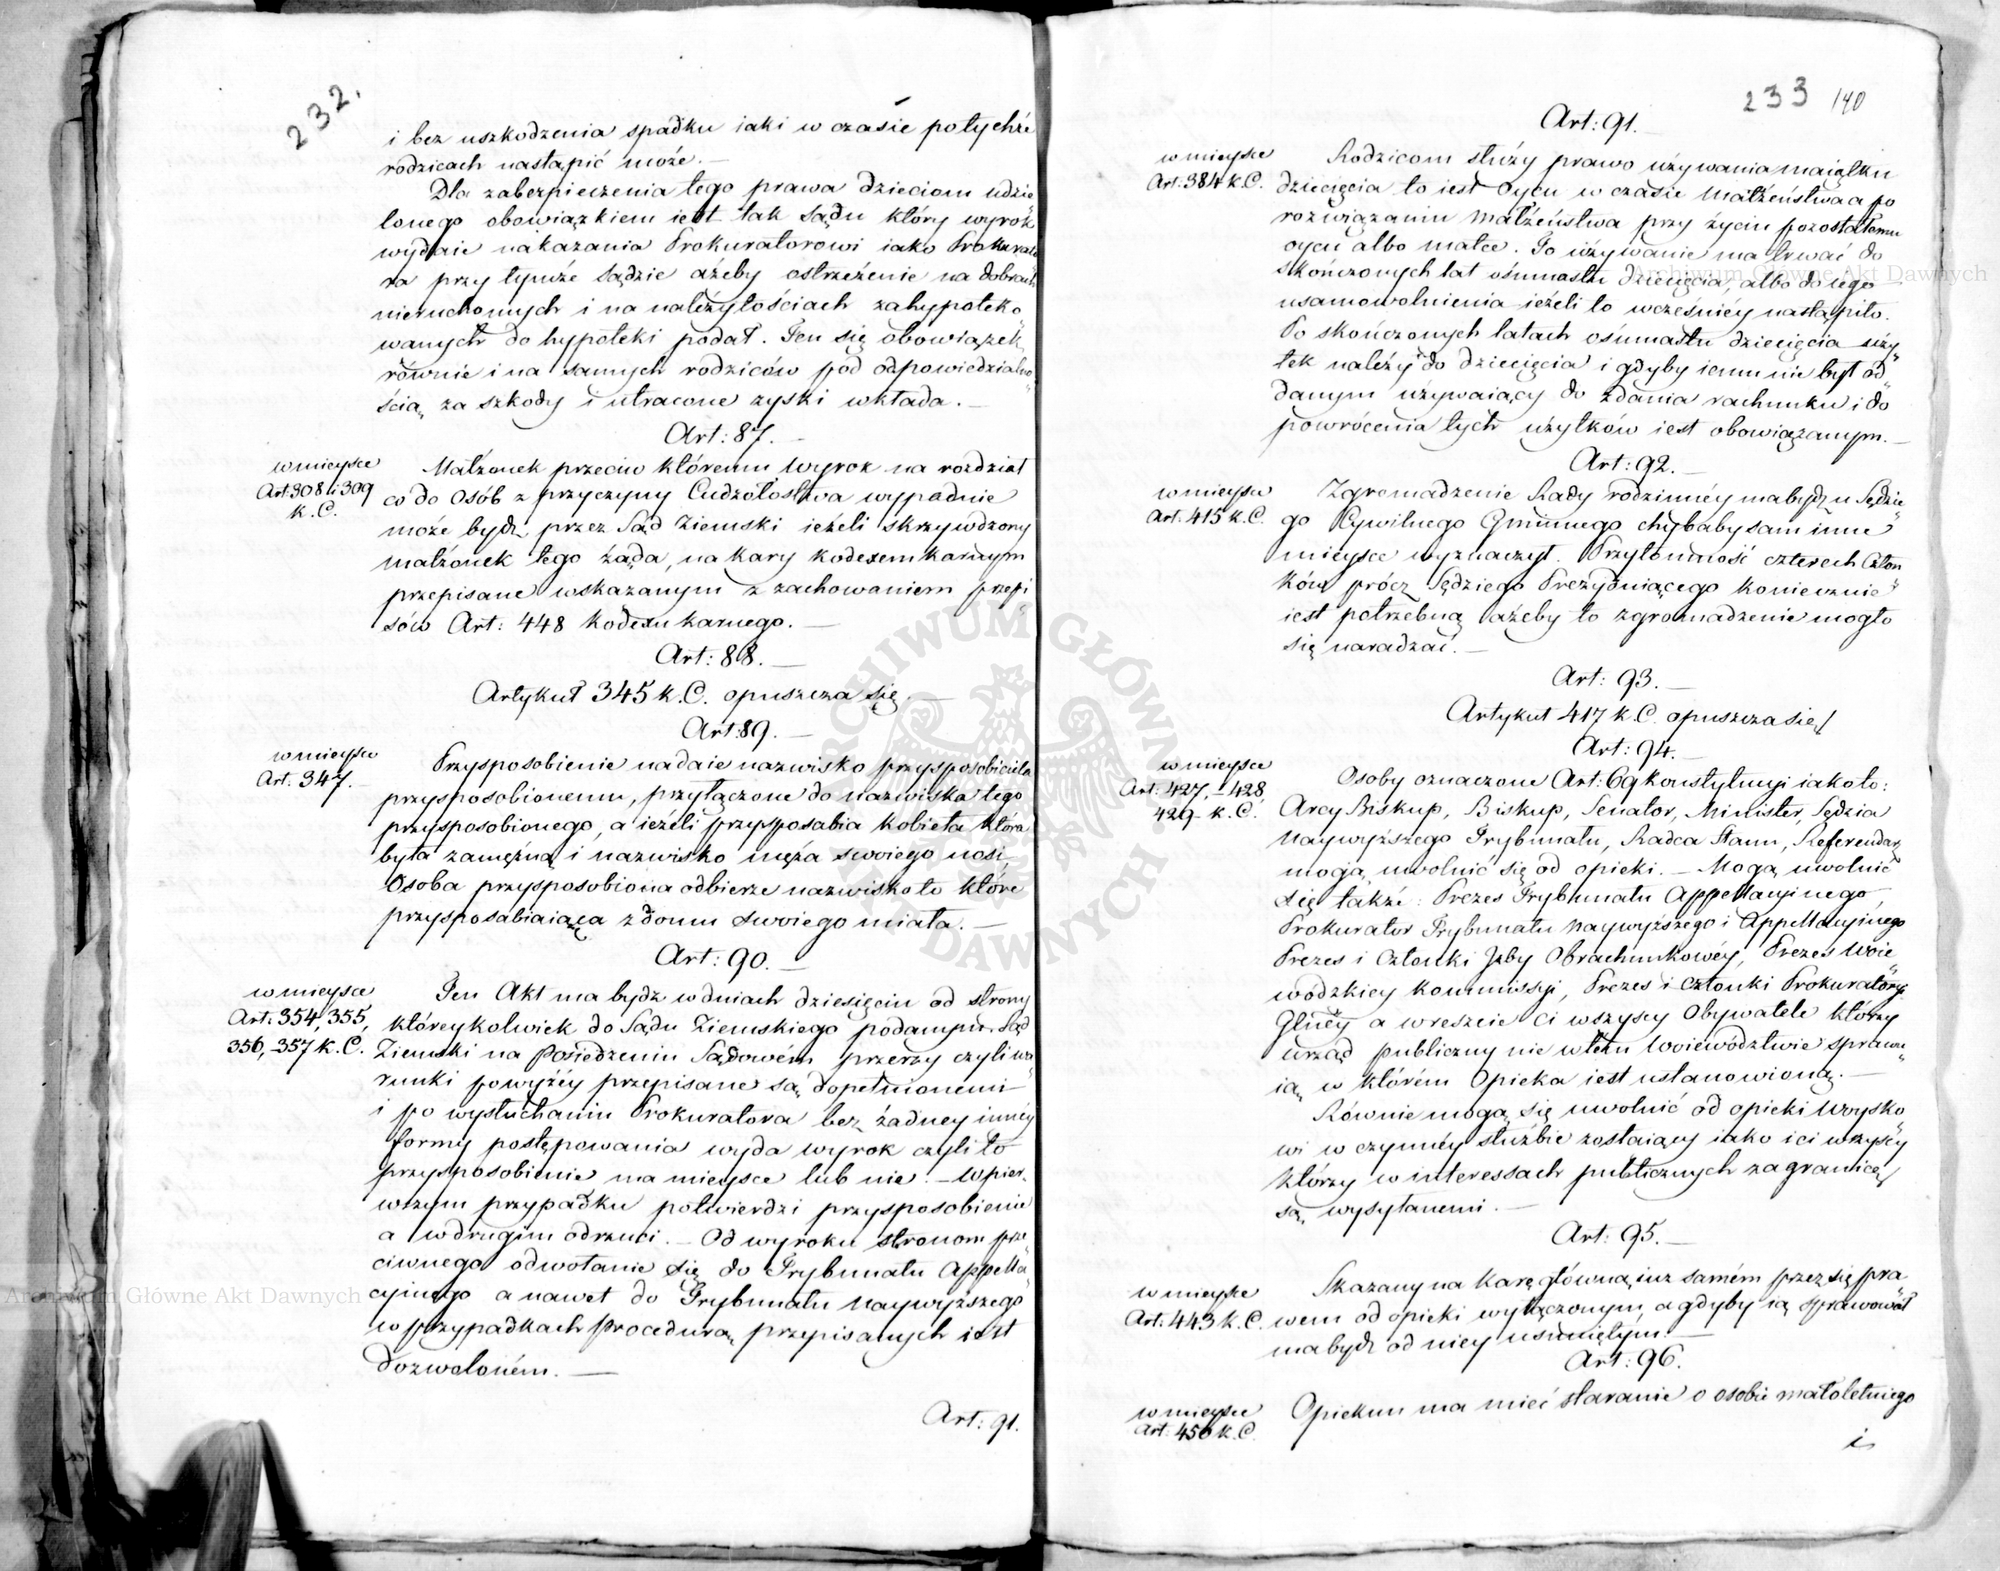 232.
i bez uszkodzenia spadku iaki w czasie po tychże
rodzicach nastąpić może. —
Dla zabezpieczenia tego prawa dzieciom udzie
lonego obowiązkiem iest tak Sądu który wyrok
wydaie nakazania Prokuratorowi iako Prokurato
ra przy tymże Sądzie ażeby ostrzeżenie na dobrach
nieruchomych i na należytościach zahypoteko
wanych do hypoteki podał. Ten się obowiązek
równie i na samych rodziców pod odpowiedzialno
ścią za szkody i utracone zyski wkłada. —
Art: 87. —
w mieysce
Art: 308 i 309
K.C.
Małżonek przeciw któremu wyrok na rozdział
co do Osób z przyczyny Cudzołostwa wypadnie
może bydz przez Sąd Ziemski ieżeli skrzywdzony
małżonek tego żąda, na kary kodexem karnym
przepisane wskazanym z zachowaniem przepi
sów Art: 448 kodexu karnego. —
Art: 88. —
Artykuł 345 K.C. opuszcza się. —
Art: 89. —
w mieysce
Art. 347. —
Przysposobienie nadaie nazwisko przysposobiciela
przysposobionemu, przyłączone do nazwiska tego
przysposobionego, a ieżeli przysposabia kobieta która
była zamężną i nazwisko męża swoiego nosi,
Osoba przysposobiona odbierze nazwisko to które
przysposabiaiąca z domu swoiego miała. —
Art: 90. —
w mieysce
Art: 354, 355,
356, 357 K.C.
Ten Akt ma bydz w dniach dziesięciu od strony
któreykolwiek do Sądu Ziemskiego podanym. Sąd
Ziemski na Posiedzeniu Sądowém przerzy czyli wa
runki powyżéy przepisane są dopełnionemi
i po wysłuchaniu Prokuratora bez żadney innéy
formy postępowania wyda wyrok czyli to
przysposobienie ma mieysce lub nie. — W pier
wszym przypadku potwierdzi przysposobienie
a w drugim odrzuci. — Od wyroku stronom prze
ciwnego odwołanie się do Trybunału Appella
cyinego a nawet do Trybunału Naywyższego
w przypadkach Procedurą przepisanych iest
dozwoloném. —
Art: 91.
233 140
Art: 91. —
w mieysce
Art. 384 K.C.
Rodzicom służy prawo używania maiątku
dziecięcia to iest Oycu w czasie Małżeństwa a po
rozwiązaniu Małżeństwa przy życiu pozostałemu
oycu albo matce. To używanie ma trwać do
skończonych lat ośmnastu dziecięcia, albo do iego
usamowolnienia ieżeli to wcześniéy nastąpiło.
Po skończonych latach ośmnastu dziecięcia uży
tek należy do dziecięcia i gdyby iemu nie był od
danym używaiący do zdania rachunku i do
powrócenia tych użytków iest obowiązanym. —
Art: 92. —
w mieysce
Art. 415 K.C.
Zgromadzenie Rady rodzinnéy ma bydz u Sędzie
go Cywilnego Gminnego chybaby sam inne
mieysce wyznaczył. Przytomność czterech Człon
ków prócz Sędziego Prezyduiącego koniecznie
iest potrzebną ażeby to zgromadzenie mogło
się naradzać. —
Art: 93. —
Artykuł 417 K.C. opuszcza się/
Art: 94. —
w mieysce
Art: 427, 428,
429 K.C.
Osoby oznaczone Art: 69 konstytucyi iako to:
Arcy Biskup, Biskup, Senator, Minister, Sędzia
Naywyższego Trybunału, Radca Stanu, Referendarz
mogą uwolnić się od opieki. — Mogą uwolnić
się także: Prezes Trybunału Appellacyinego,
Prokurator Trybunału Naywyższego i Appellacyinego
Prezes i Członki Izby Obrachunkowéy, Prezes Woie
wódzkiey kommissyi, Prezes i Członki Prokuratoryi
Głnéy a wreszcie Ci wszyscy Obywatele którzy
urząd publiczny nie w tém Woiewództwie sprawu
ią, w którém Opieka iest ustanowioną. —
Równie mogą się uwolnić od opieki Woysko
wi w czynnéy służbie zostaiący iako i ci wszyscy
którzy w interessach publicznych za granicę
są wysyłanemi. —
Art: 95. —
w mieysce
Art: 443 K.C.
Skazany na karę główną iuż samém przez się pra
wem od opieki wyłączonym, a gdyby ią sprawował
ma bydz od niey usuniętym. —
Art: 96.
w mieysce
Art: 450 K.C.
Opiekun ma mieć staranie o osobie małoletniego
i
ARCHIWUM GŁÓWNE AKT DAWNYCH
Archiwum Główne Akt Dawnych
Archiwum Główne Akt Dawnych